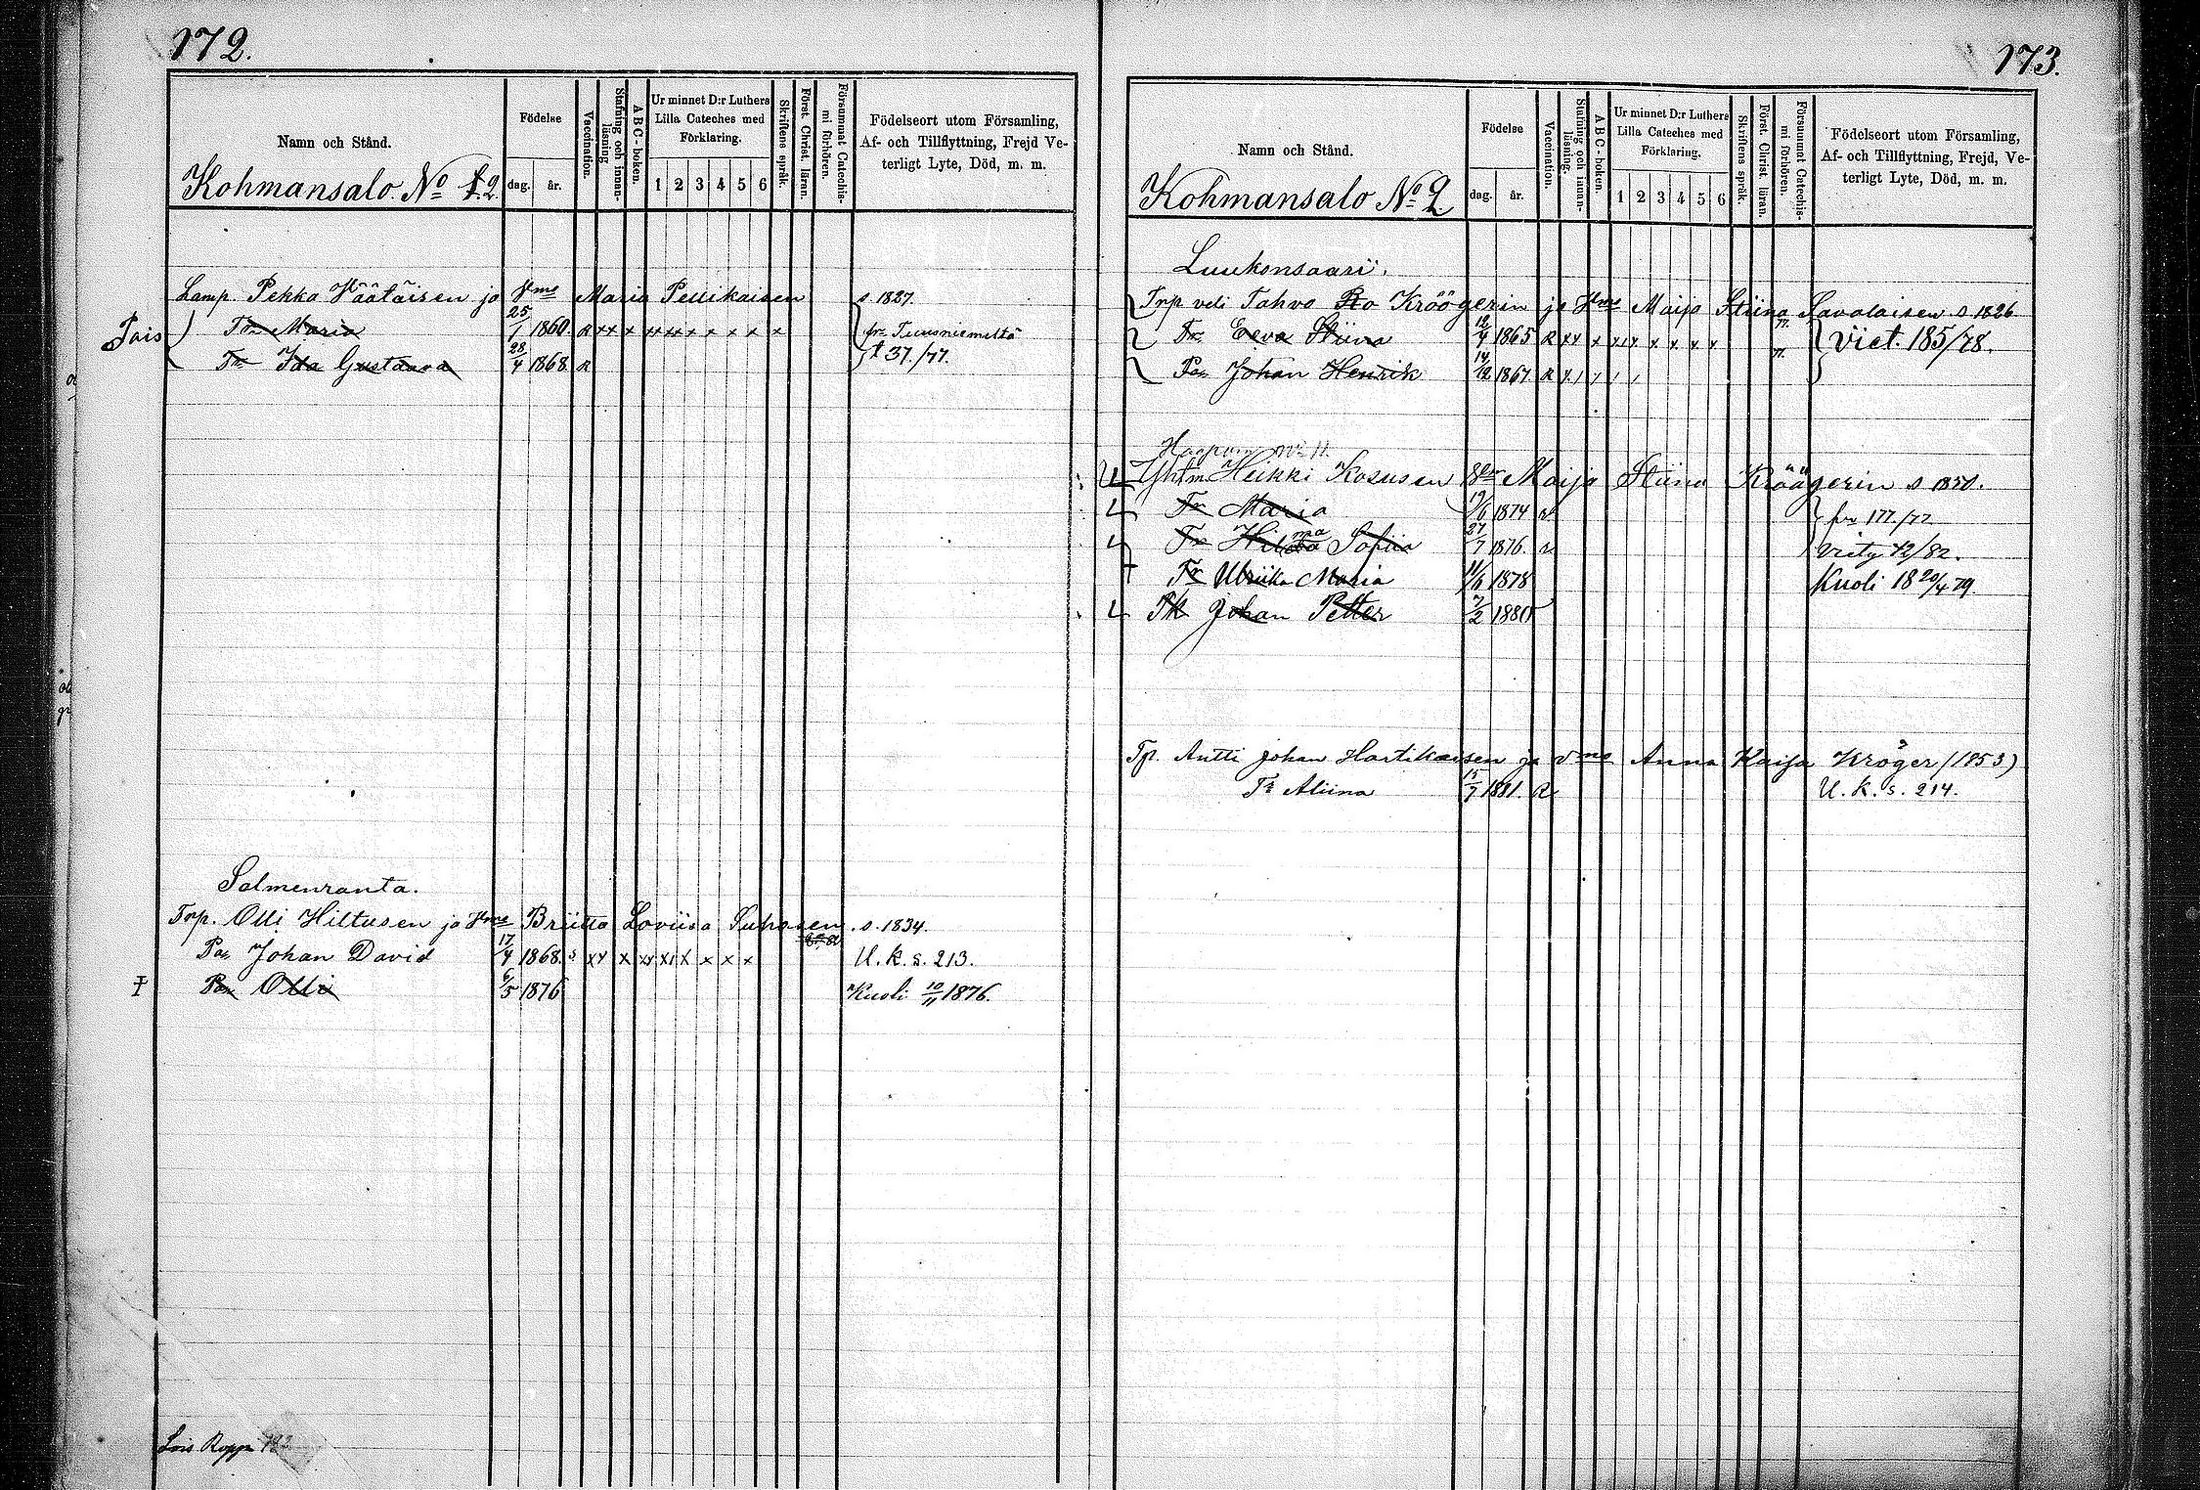 172.
Namn och Stånd.
Födelse
dag.
år.
Vaccination.
Stafning och innan-
läsning
ABC-boken.
Ur minnet D:r Luthers
Lilla Cateches med
Förklaring.
1 2 3 4 5 6
Skriftens språk.
Först. Christ. läran.
Försummat Catechis-
mi förhören.
Födelseort utom Församling,
Af- och Tillflyttning, Frejd Ve-
terligt Lyte, Död, m. m.
Kohmansalo. No 2.
Lamp. Pekka Väätäisen ja Vmo Maria Pellikaisen s 1827.
Pois Tr. Maria 25/1 1860. R xx x xx xx x x x x x fr. Tuusniemeltä
Tr Ida Gustaava 28/4 1868. R t 37./77.
Salmenranta.
Trp. Olli Hiltusen ja Vmo Briitta Loviisa Suhosen. s. 1834.
Po. Johan David 17/4 1868. s xx x xx xx x x x x U. k. s. 213.
Po. Olli 6/5 1876 Kuoli 10/11 1876.
173.
Namn och Stånd.
Födelse
dag.
år.
Vaccination.
Stafning och innan-
läsning.
ABC-boken.
Ur minnet D:r Luthers
Lilla Cateches med
Förklaring.
1 2 3 4 5 6
Skriftens språk.
Först. Christ. läran.
Försummat Catechis-
mi förhören.
Födelseort utom Församling,
Af- och Tillflyttning, Frejd, Ve-
terligt Lyte, Död, m. m.
Kohmansalo No 2
Luukonsaari.
Trp veli Tahvo Kröögerin ja Vmo Maija Stiina Savolaisen s 1826
Tr. Eeva Stiina 12/4 1865 R xx x x x x x x x 77. vict. 185/78.
Po. Johan Henrik 14/12 1867. R x / / / / 77.
No 11.
Yhtm Heikki Kosusen Maija Stiina Kröögerin s 1850.
Tr Maria 19/6 1874 fr 177./77
Tr Hilma Sofiia 27/7 1876. Vrity 42/82.
Tr Ulriika Maria 11/6 1878 Kuoli 18 20/4 79.
Pk Johan Petter 7/2 1880
Tp. Antti Johan Hartikaisen ja vmo Anna Kaisa Kröger (1853)
Tr Aliina 15/7 1881. R U. k. s. 214.